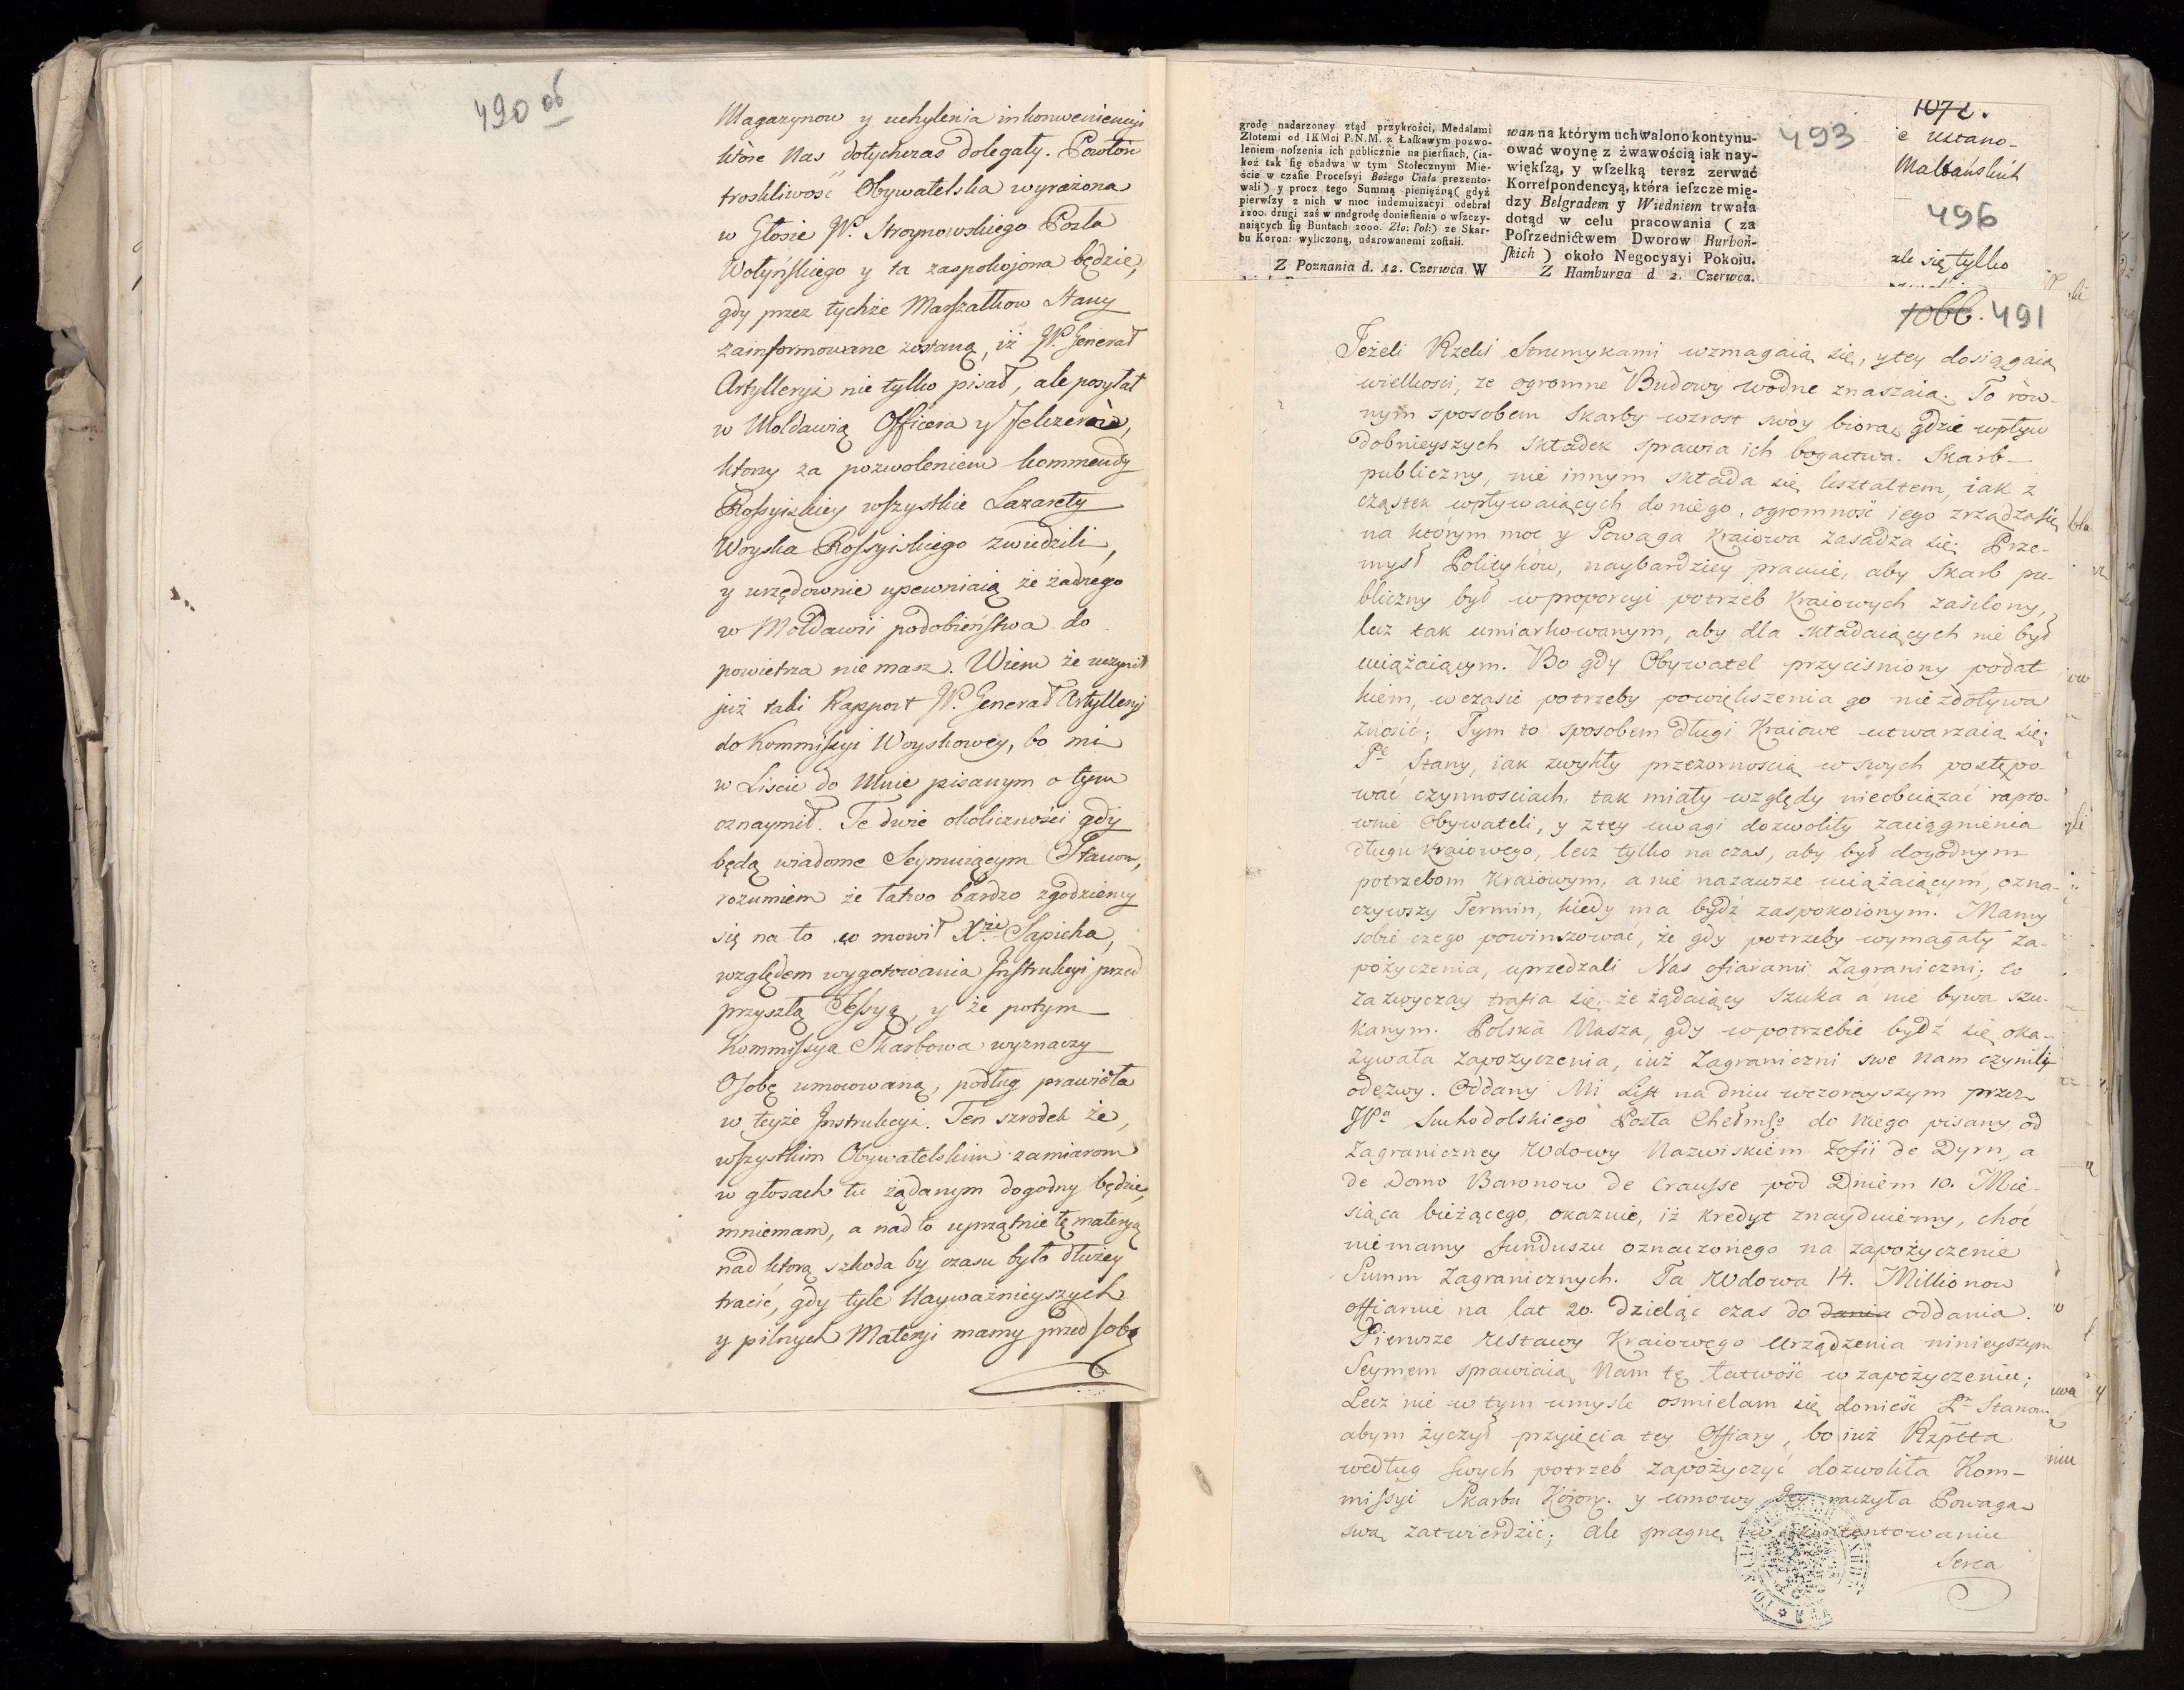 490 об
Magazynow y uchylenia inkonweniencyi
które Nas dotychczas dolegały. Powtore
troskliwość Obywatelska wyrażona
w Głosie W. Stroynowskiego Posła
Wołyńskiego y ta zaspokojona będzie,
gdy przez tychże Marszałkow Stany
zainformowane zostaną, iż W. Generał
Artylleryi nie tylko pisał, ale posyłał
w Moldawią Officera y Felczerów,
ktory za pozwoleniem kommendy
Rossyiskiey wszystkie Lazarety
Woyska Rossyiskiego zwiedzili,
y urzędownie upewniaią że żadnego
w Mołdawii podobieństwa do
powietrza nie masz. Wiem że uczynił
już taki Rapport W. Generał Artylleryi
do Kommissyi Woyskowey, bo mi
w Liscie do Mnie pisanym o tym
oznaymił. Te dwie okoliczności gdy
będą wiadome Seymuiącym Stanom,
rozumiem że łatwo bardzo zgodziemy
się na to co mowił Xże Sapieha,
względem wygotowania Instrukcyi przed
przyszłą Sessyą, y że potym
Kommissya Skarbowa wyznaczy
Osobę umocowaną, podług prawideł
w teyże Instrukcyi. Ten szrodek że,
wszystkim Obywatelskim zamiarom
w głosach tu żądanym dogodny będzie,
mniemam, a nad to uprzątnie tę materyą
nad ktorą szkoda by czasu było dłużey
tracić, gdy tyle Nayważnieyszych
y pilnych Materyi mamy przed sobą
grodę nadarzoney ztąd przykrości, Medalami
Złotemi od IKMci P.N.M. z Łaſkawym pozwo-
leniem noſzenia ich publicznie na pierſiach, (ia-
koż tak ſię obadwa w tym Stołecznym Mie-
ście w czaſie Proceſsyi Bożego Ciała prezento-
wali) y procz tego Summą pieniężną( gdyż
pierwſzy z nich w moc indemnizacyi odebrał
1200. drugi zaś w nadgrodę donieſienia o wſzczy-
naiących ſię Buntach 2000. Zło: Pol:) ze Skar-
bu Koron: wyliczoną, udarowanemi zoſtali.
Z Poznania d. 12. Czerwca. W
wan na którym uchwalono kontynu-
ować woynę z żwawością iak nay-
więkſzą, y wſzelką teraz zerwać
Korreſpondencyą, która ieſzcze mię-
dzy Belgradem y Wiedniem trwała
dotąd w celu pracowania ( za
Poſrzednictwem Dworow Burboń-
ſkich ) około Negocyayi Pokoiu.
Z Hamburga d. 2. Czerwca.
493
1072.
e Ustano-
Maltańskich
496
ale się tylko
1066. 491
Jeżeli Rzeki Strumykami wzmagaią się, y tey dosiągaią
wielkosci, że ogromne Budowy wodne znaszaią. To rów-
nym sposobem Skarby wzrost swóy biorą, gdzie wpływ
dobnieyszych składek sprawia ich bogactwa. Skarb
publiczny, nie innym składa się kształtem, iak z
cząstek wpływaiących do niego, ogromność iego zrządza się
na którym moc y Powaga Kraiowa zasadza się. Prze-
mysł Polityków, naybardziey pracuie, aby Skarb pu-
bliczny był w proporcyi potrzeb Kraiowych zasilony,
lecz tak umiarkowanym, aby dla składaiących nie był
uciążaiącym. Bo gdy Obywatel przyciśniony podat-
kiem, w czasie potrzeby powiększenia go nie zdoływa
znosić; Tym to sposobem długi Kraiowe utwarzaią się.
Pe Stany, iak zwykły przezornoscią w swych postępo-
wać czynnosciach, tak miały względy nieobciążać rapto-
wnie Obywateli, y z tey uwagi dozwoliły zaciągnienia
długu Kraiowego, lecz tylko na czas, aby był dogodnym
potrzebom Kraiowym, a nie nazawsze uciążaiącym, ozna-
czywszy Termin, kiedy ma bydź zaspokoionym. Mamy
sobie czego powinszować, że gdy potrzeby wymagały za-
pożyczenia, uprzedzali Nas ofiarami Zagraniczni; co
zazwyczay trafia się, że żądaiący szuka a nie bywa szu-
kanym. Polska Nasza, gdy w potrzebie bydź się oka-
zywała zapożyczenia, iuż Zagraniczni swe Nam czynili
odezwy. Oddany Mi List na dniu wczorayszym przez
JPa Suchodolskiego Posła Chełmsgo do Niego pisany od
Zagraniczney Wdowy Nazwiskiem Zofii de Dyrn, a
de Domo Baronow de Crausse pod Dniem 10. Mie-
siąca bieżącego, okazuie, iż kredyt znayduiemy, choć
niemamy funduszu oznaczonego na zapożyczenie
Summ Zagranicznych. Ta Wdowa 14. Millionow
offiaruie na lat 20. dzieląc czas do dania oddania.
Pierwsze Ustawy Kraiowego Urządzenia ninieyszym
Seymem sprawiaią Nam tę łatwość w zapożyczeniu;
Lecz nie w tym umysle osmielam się donieść Pz Stanom
abym życzył przyięcia tey Offiary, bo iuż Rzpltta
według swych potrzeb zapożyczyć dozwoliła Kom-
missyi Skarbu Korony. y umowy Jey raczyła Powagą
swą zatwierdzić; ale pragnę w ukontentowaniu
Serca